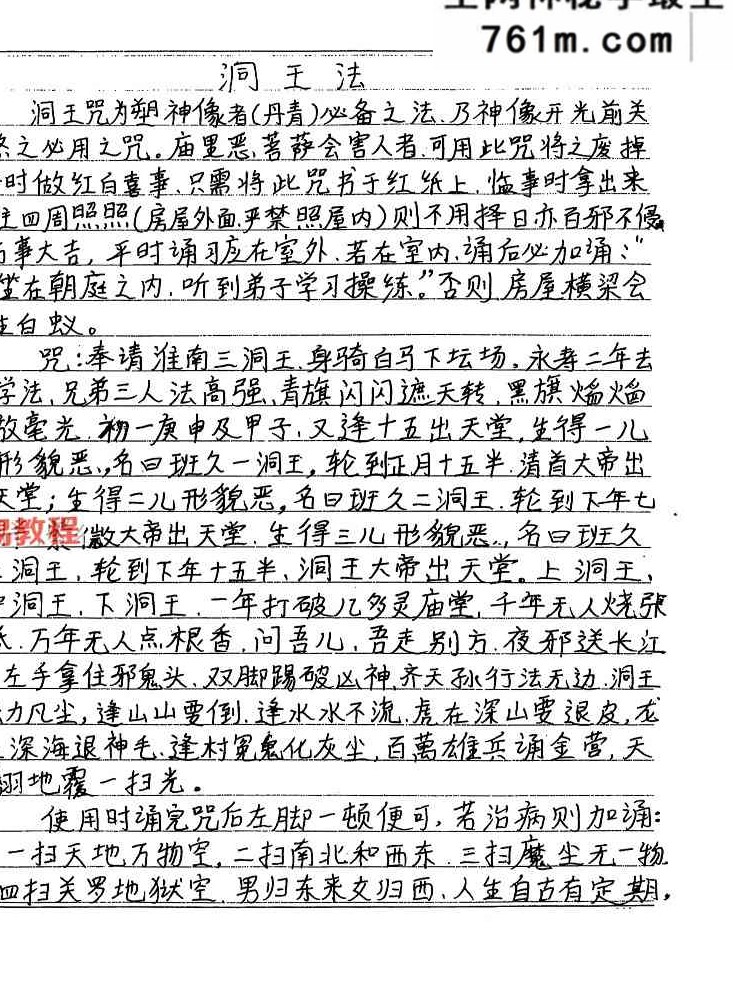 761m.com
洞王法
洞王咒为塑神像者(丹青)必备之法.乃神像开光前关
煞之必用之咒。庙里恶菩萨会害人者.可用此咒将之废掉
时做红白喜事、只需将此咒书于红纸上.临事时拿出来
往四周照照(房屋外面.严禁照屋内)则不用择日亦百邪不侵
万事大吉,平时诵习应在室外.若在室内.诵后必加诵:“
坐在朝庭之内.听到弟子学习操练。”否则房屋横梁会
生白蚁。
咒:奉请淮南三洞王.身骑白马下坛场。永寿二年去
学法,兄弟三人法高强,青旗闪闪遮天转,黑旗焰焰
放毫光.初一庚申及甲子.又逢十五出天堂,生得一儿
形貌恶.,名曰班久一洞王,轮到正月十五半.清首大帝出
天堂;生得二儿形貌恶,名曰班久二洞王.轮到下年七
易教程 微大帝出天堂.生得三儿形貌恶.,名曰班久
洞王,轮到下年十五半、洞王大帝出天堂。上洞王、
中洞王.下洞王.一年打破几多灵庙堂,千年无人烧张
纸.万年无人点根香.问吾儿.吾走别方.夜邪送长江
左手拿住邪鬼头.双脚踢破凶神.齐天孙行法无边.洞王
力凡尘,逢山山要倒.逢水水不流.虎在深山要退皮,龙
深海退神毛.逢村冤鬼化灰尘,百萬雄兵诵金营,天
翻地覆一扫光。
使用时诵完咒后左脚一顿便可,若治病则加诵:
一扫天地万物空,二扫南北和西东.三扫魔尘无一物
四扫关罗地狱空.男归东来女归西.人生自古有定期,